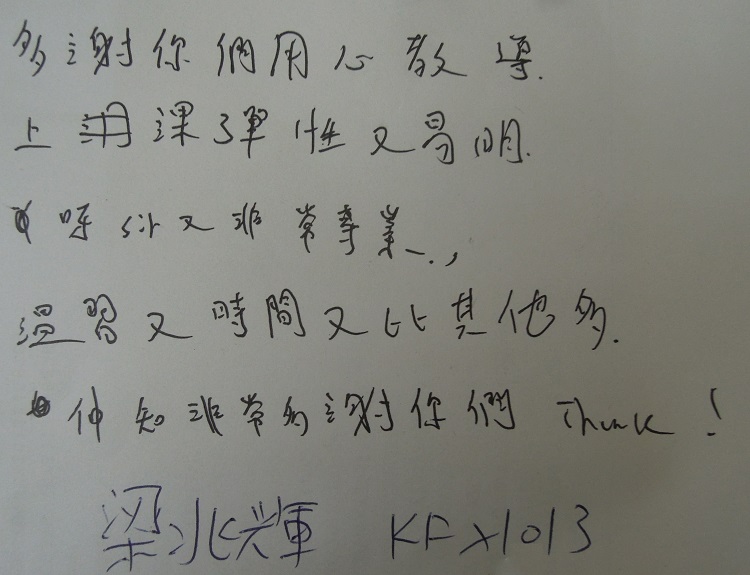 多謝你們用心教導.
上課彈性又易明.
呀Sir又非常專業.,
溫習又時間又比其他多.
非常多謝你們 Thank!
梁兆輝 KFX1013